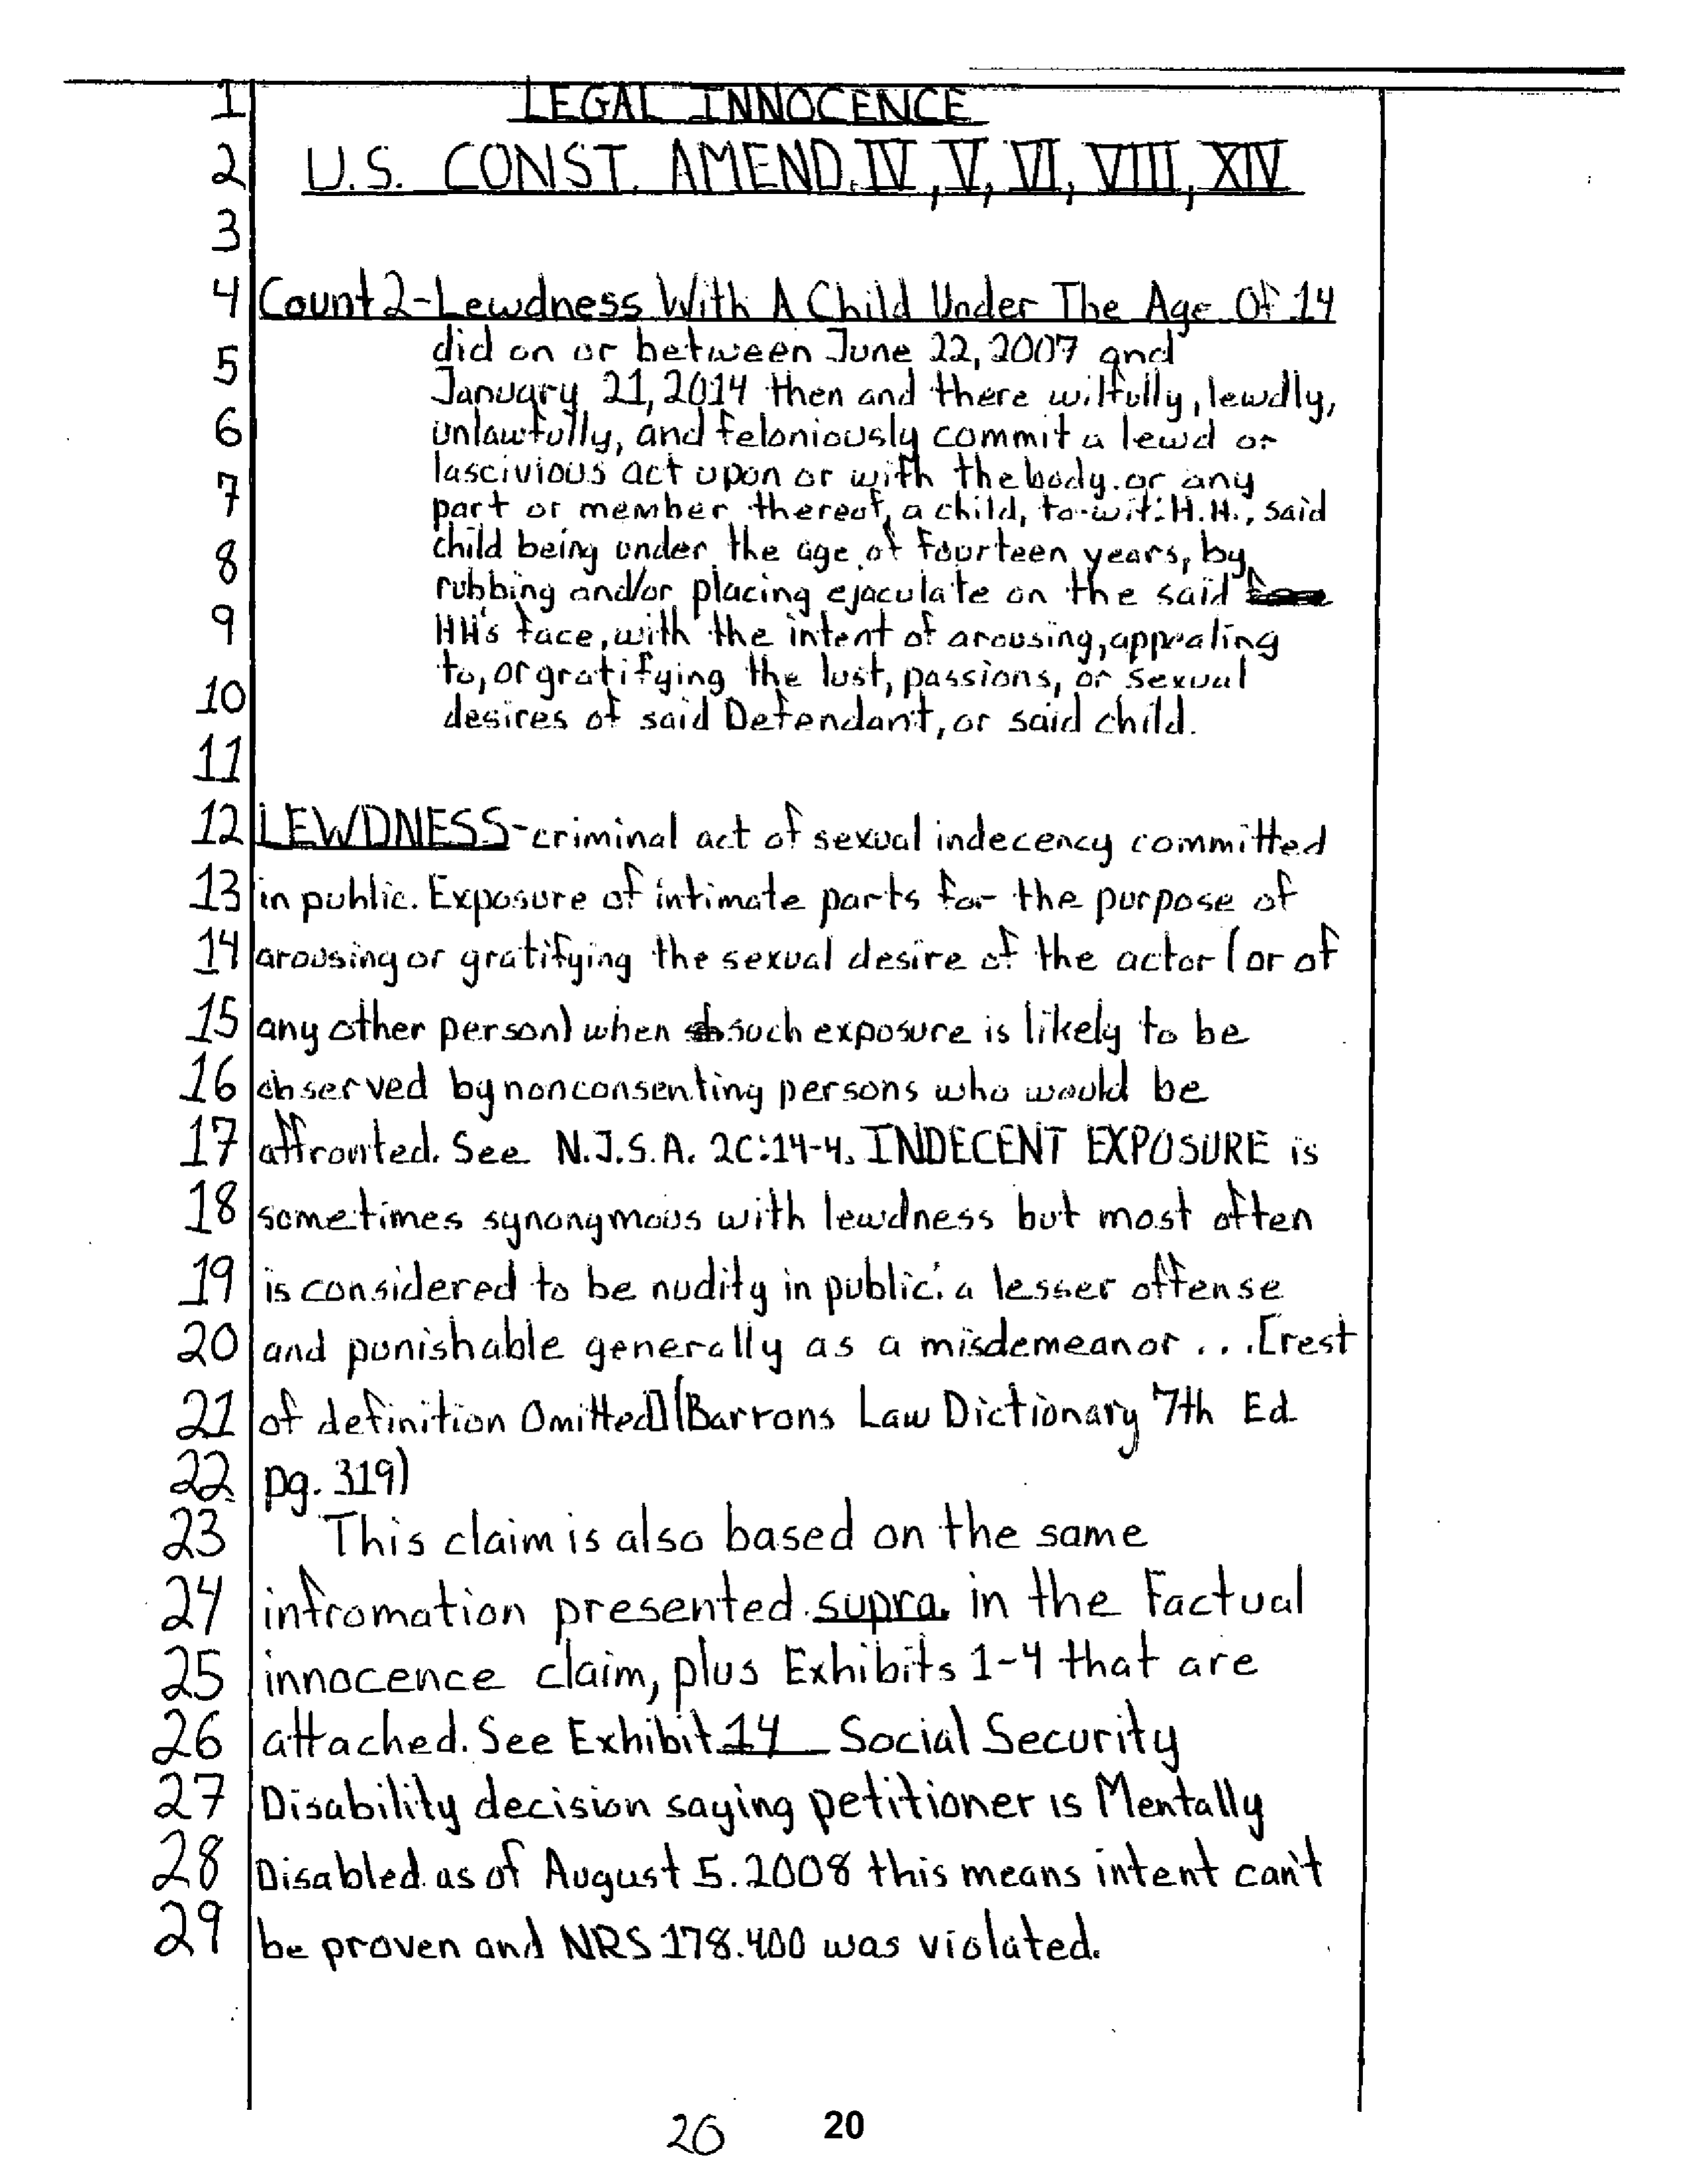 1 LEGAL INNOCENCE
2 U.S. CONST. AMEND. IV, V, VI, VIII, XIV
3
4 Count 2-Lewdness With A Child Under The Age Of 14
did on or between June 22, 2007 and
5
January 21, 2014 then and there wilfully, lewdly,
6 unlawfully, and feloniously commit a lewd or
lascivious act upon or with the body. or any
7
part or member thereof, a child, to-wit: H.H., said
child being under the age of fourteen years, by
8
rubbing and/or placing ejaculate on the said
9 HH's face, with the intent of arousing, appealing
to, or gratifying the lust, passions, or sexual
10
desires of said Defendant, or said child.
11
12 LEWDNESS-criminal act of sexual indecency committed
13 in public. Exposure of intimate parts for the purpose of
14 arousing or gratifying the sexual desire of the actor (or of
15 any other person) when such exposure is likely to be
16 observed by nonconsenting persons who would be
17 affronted. See N.J.S.A. 2C:14-4. INDECENT EXPOSURE is
18 sometimes synonymous with lewdness but most often
19 is considered to be nudity in public: a lesser offense
20 and punishable generally as a misdemeanor . . . [rest
21 of definition Omitted] (Barrons Law Dictionary 7th Ed
22 pg. 319)
23 This claim is also based on the same
24 infromation presented supra. in the Factual
25 innocence claim, plus Exhibits 1-4 that are
26 attached. See Exhibit 14 Social Security
27 Disability decision saying petitioner is Mentally
28 Disabled as of August 5. 2008 this means intent can't
29 be proven and NRS 178.400 was violated.
20 20